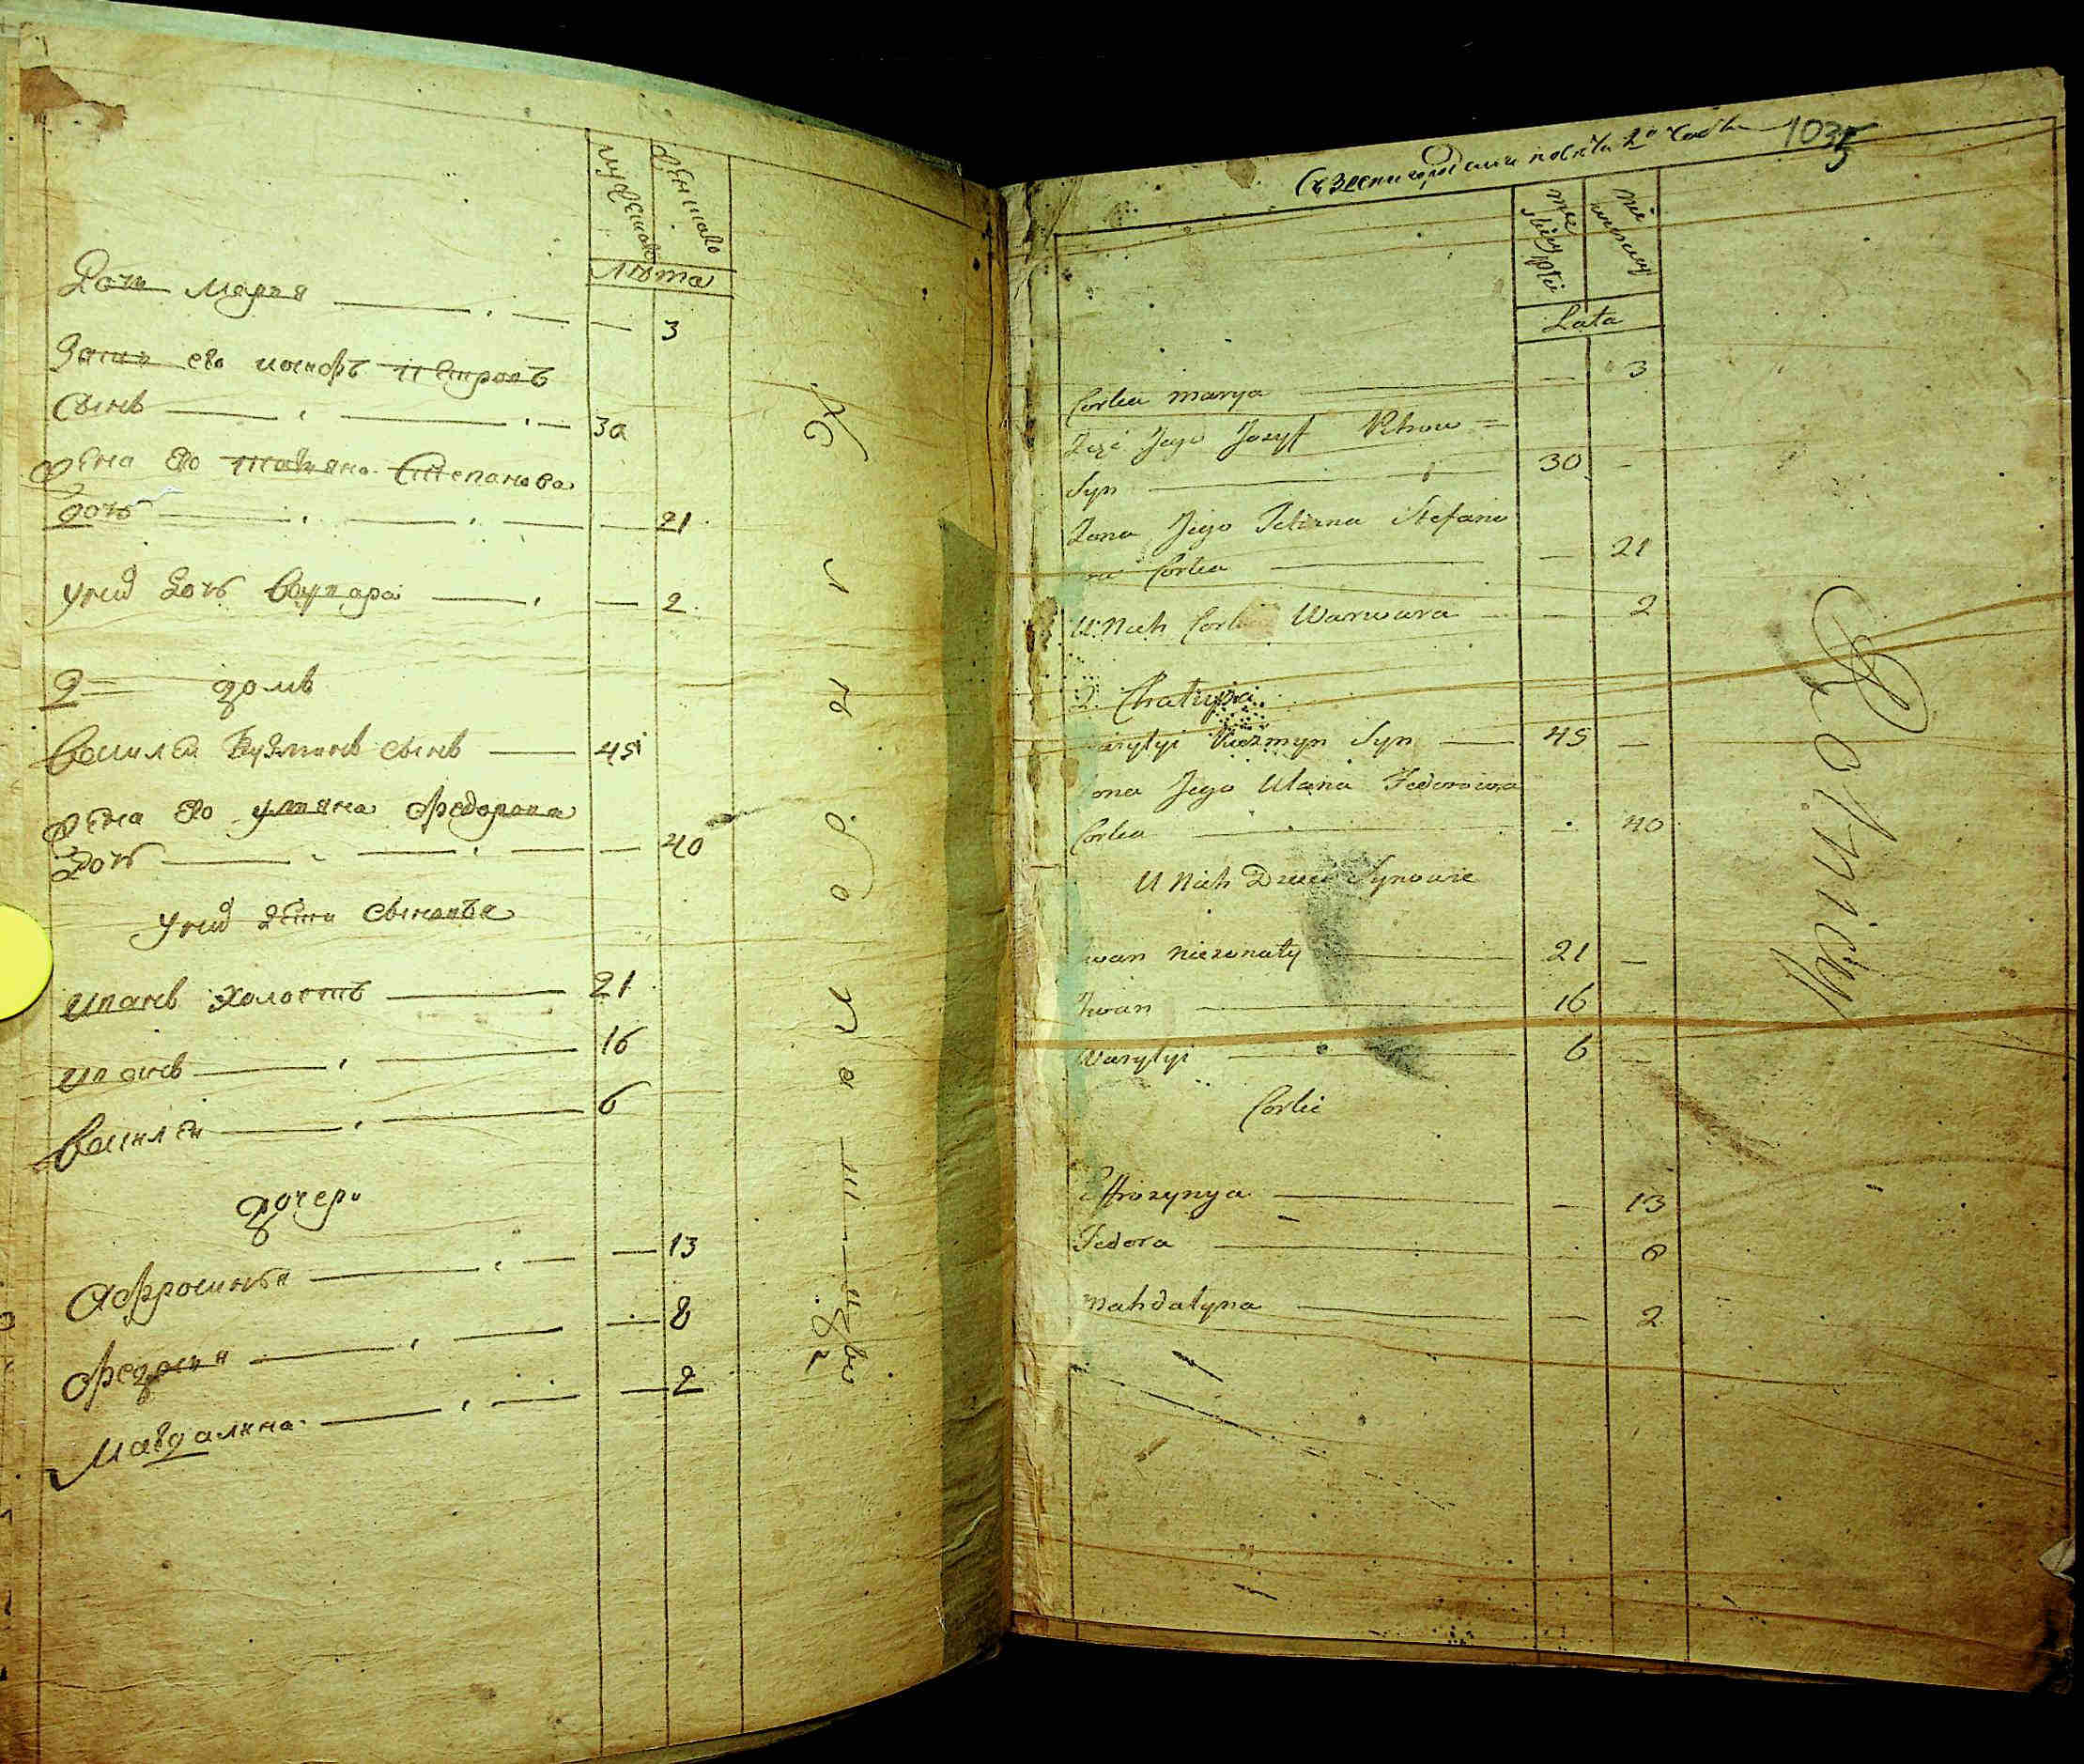 мужеска женска
Лѣта
Дочь Марья — — — 3
Зять его иосифъ петровъ
Сынъ — — 30
Жена его татьяна Степанова
дочь — — — 21
унихъ дочь варвара — — 2
2 домъ
Василей Кузминъ сынъ — 45
Жена его ульяна Федорова
дочь — — — 40
унихъ дѣти сыновья
иванъ холостъ — 21
иванъ — — 16
василей — — 6
дочери
Афросинья — — — 13
Федосия — — — 8
Магдалина — — — 2
1035
męskiej płci
Lata
Corka marya — — 3
Zęć Jego Jozyf Petrow =
Syn — 30 —
Zona Jego Tetiana Stefano
wa Corka — — 21
U Nich Corka Warwara — — 2
2. Chatupa
asylyi Kuzmyn Syn — 45 —
ona Jego Ulana Fedorowa
Corka — — 40
U Nich Dzieci Synowie
wan niezonaty — 21 —
Iwan — 16
Wasylyi — 6 —
Corki
Effrozynya — — 13
Fedora — 8
Mahdalyna — — 2
Rolnicy